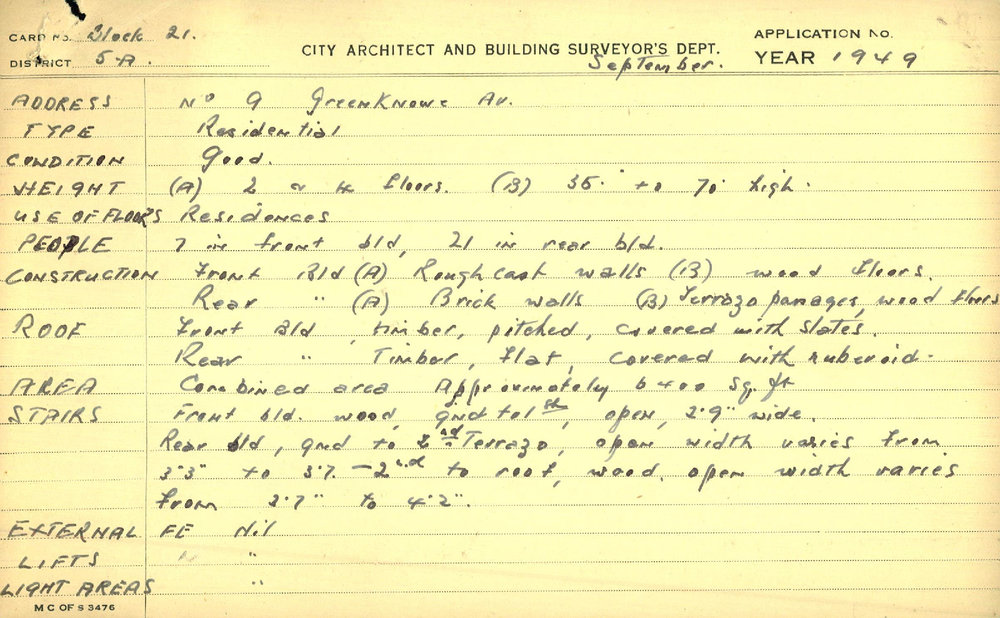 CARD NO. Block 21.
DISTRICT 5A.
CITY ARCHITECT AND BUILDING SURVEYOR'S DEPT.
September.
APPLICATION NO.
YEAR 1949
ADDRESS No 9 Greenknowe Av.
TYPE Residential
CONDITION Good.
HEIGHT (A) 2 & 4 floors. (B) 35' to 70' high.
USE OF FLOORS Residences
PEOPLE 7 in front bld, 21 in rear bld.
CONSTRUCTION Front Bld (A) Roughcast walls (B) wood floors.
Rear " (A) Brick walls (B) Terrazo panages, wood floors
ROOF Front Bld, timber, pitched, covered with slates.
Rear " Timber, flat, covered with ruberoid.
AREA Combined area Approximately 6400 Sq. ft
STAIRS Front bld. wood, gnd to 1st, open, 2'9" wide.
Rear bld, gnd to 2nd Terrazo, open width varies from
3'3" to 3'7. - 2nd to roof, wood. open width varies
from 2'7" to 4'2".
EXTERNAL FE Nil
LIFTS " "
LIGHT AREAS "
M C OF S 3476